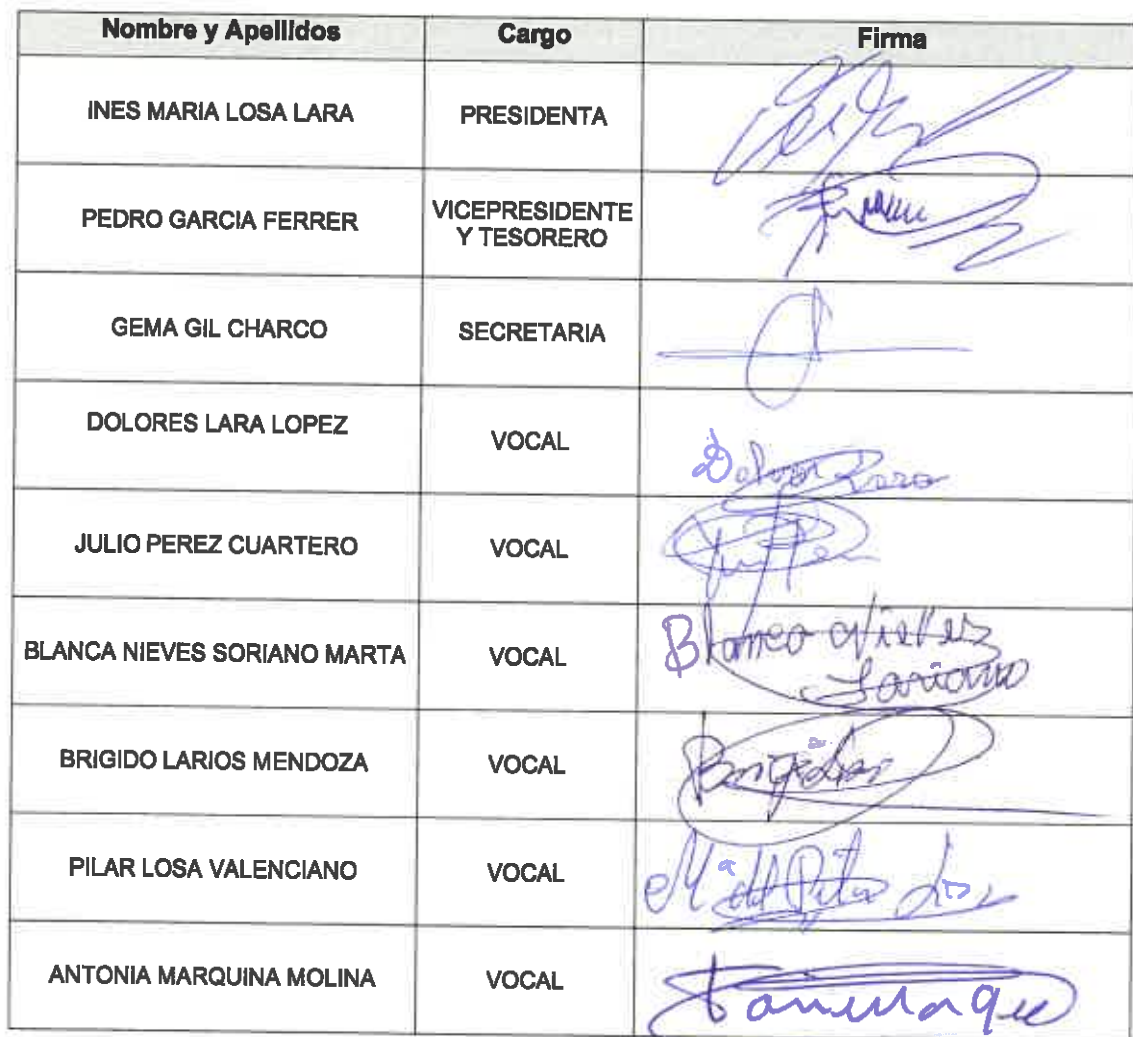 Nombre y Apellidos Cargo Firma
INES MARIA LOSA LARA PRESIDENTA
PEDRO GARCIA FERRER VICEPRESIDENTE
Y TESORERO
GEMA GIL CHARCO SECRETARIA
DOLORES LARA LOPEZ VOCAL
Dolores Lara
JULIO PEREZ CUARTERO VOCAL
BLANCA NIEVES SORIANO MARTA VOCAL Blanca Nieves
Soriano
BRIGIDO LARIOS MENDOZA VOCAL
PILAR LOSA VALENCIANO VOCAL Mª del Pilar
ANTONIA MARQUINA MOLINA VOCAL